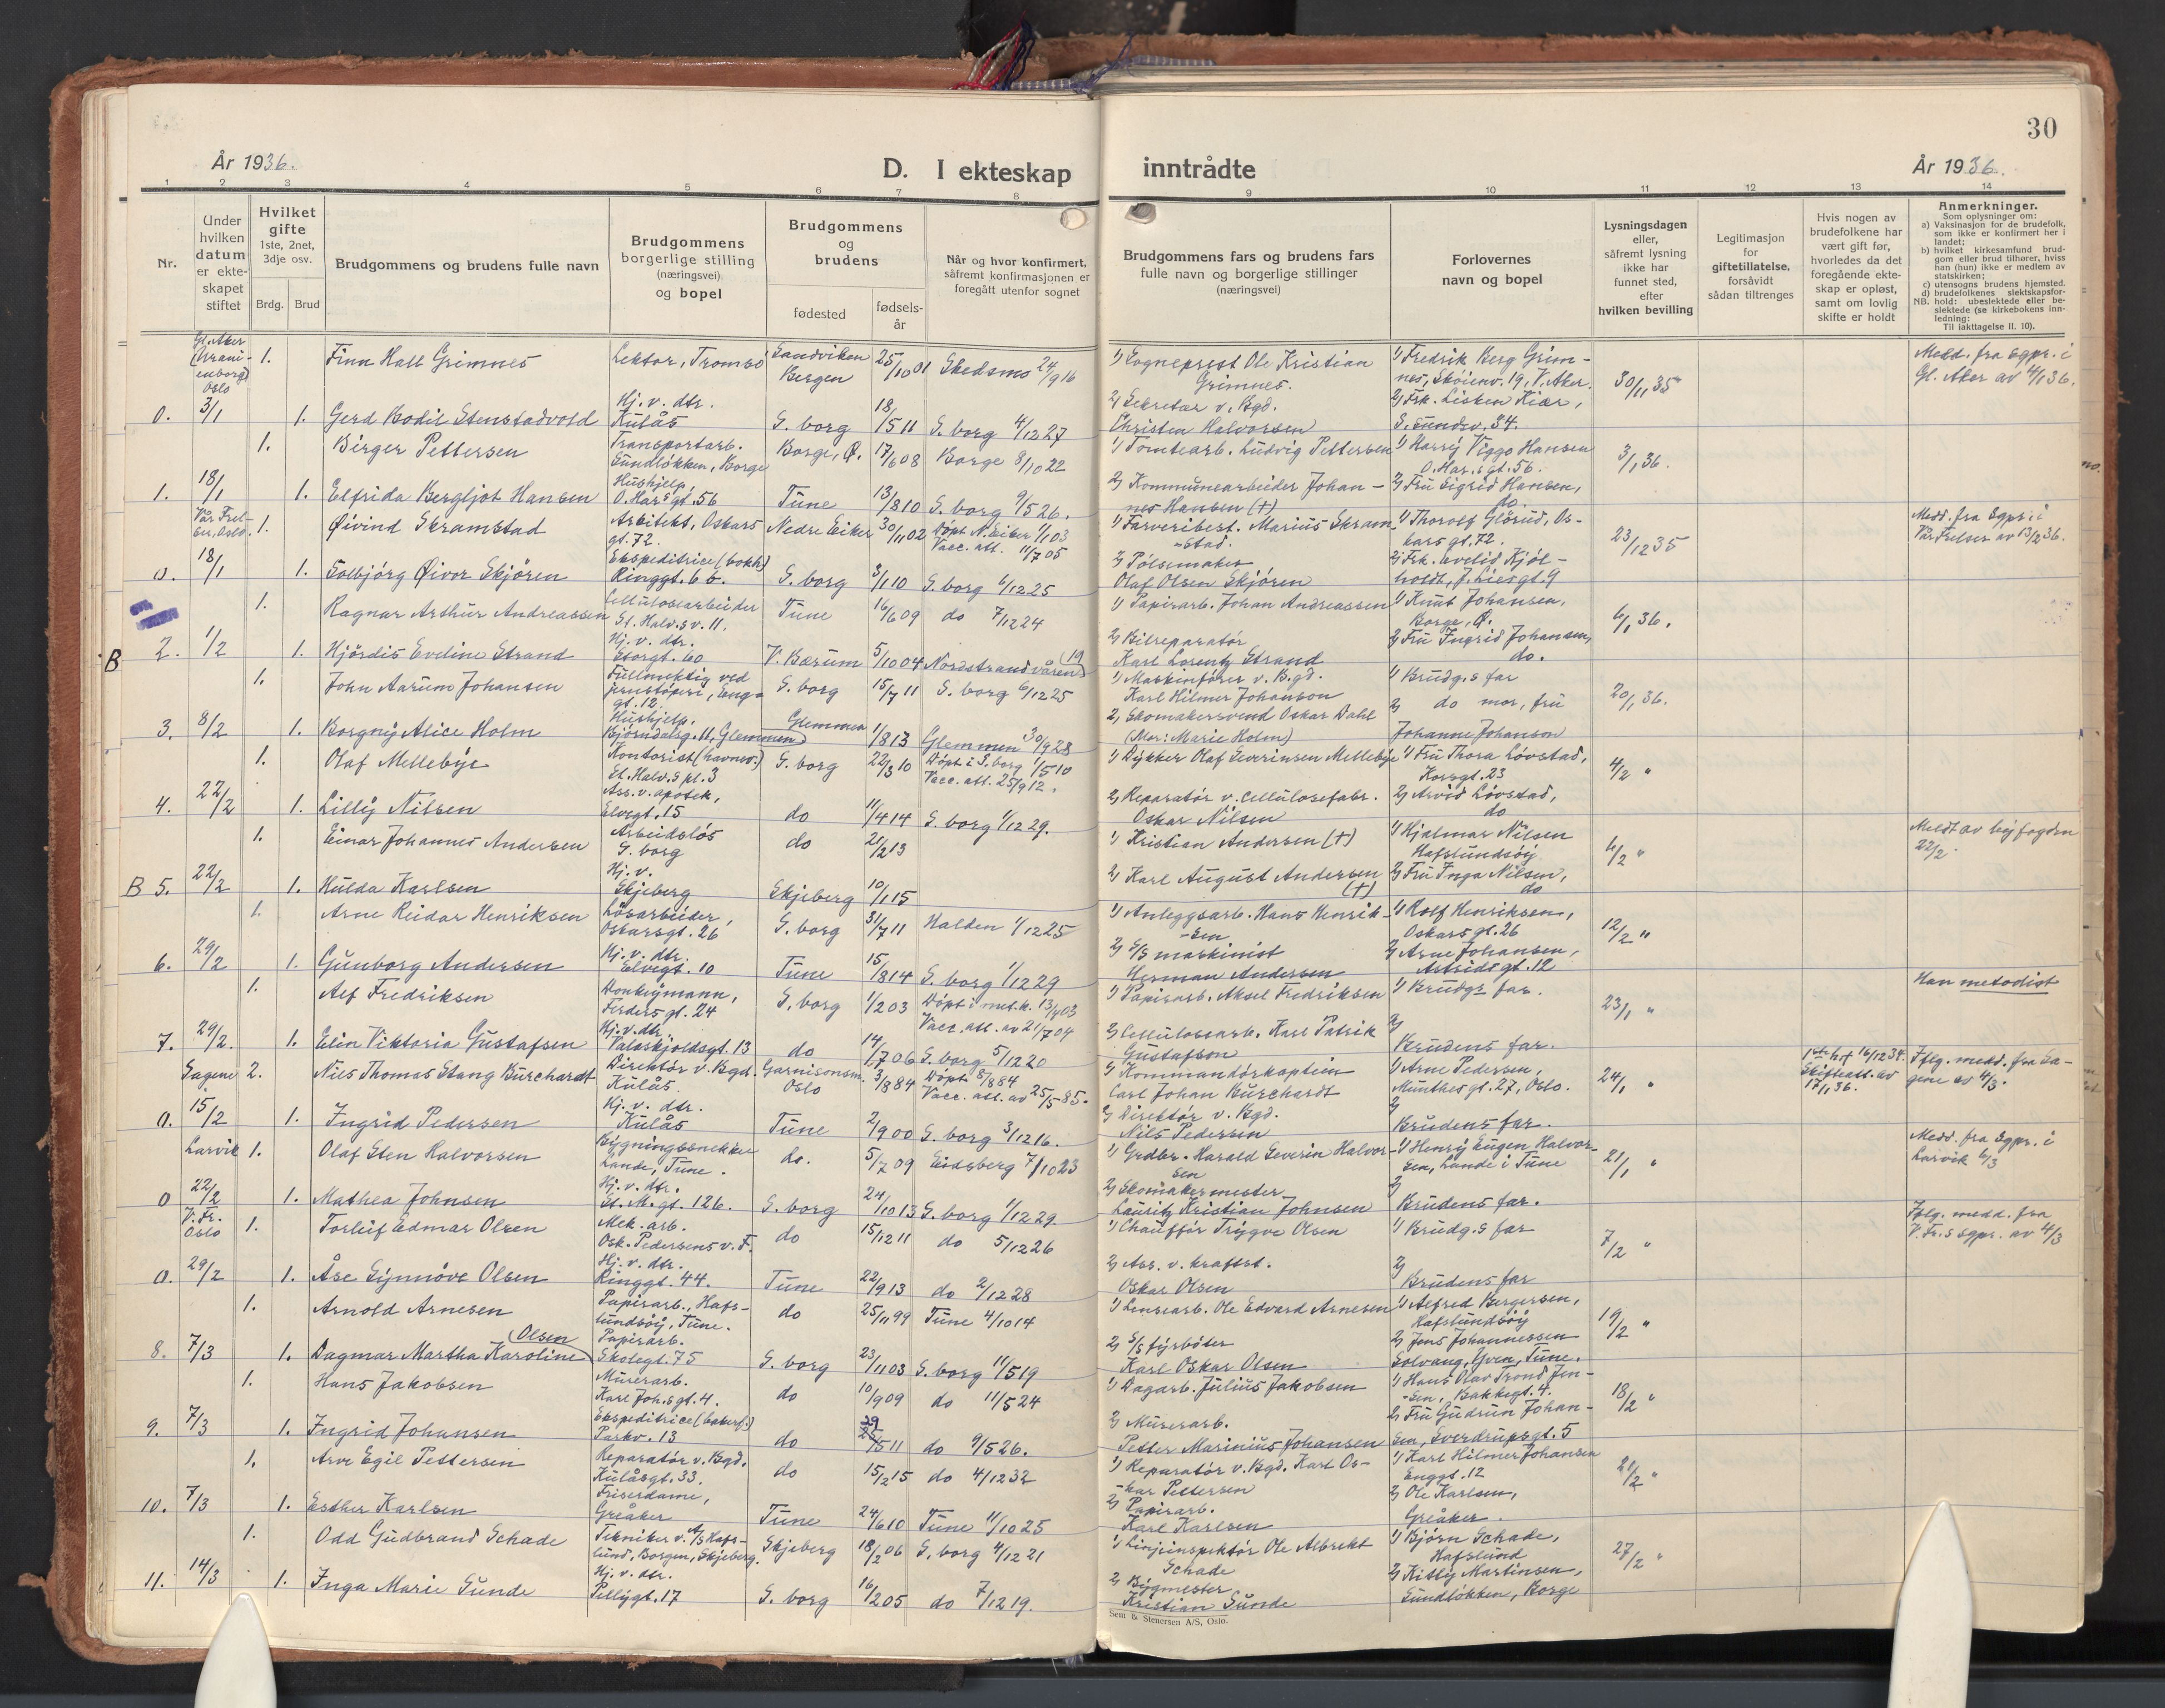 30
År 1936.
D. I ekteskap inntrådte
År 1936.
1 2 3 4 5 6 7 8 9 10 11 12 13 14
Nr.
Under hvilken datum er ekteskapet stiftet
Hvilket gifte 1ste, 2net, 3dje osv.
Brdg. Brud
Brudgommens og brudens fulle navn
Brudgommens borgerlige stilling (næringsvei) og bopel
Brudgommens og brudens
fødested
fødselsår
Når og hvor konfirmert, såfremt konfirmasjonen er foregått utenfor sognet
Brudgommens fars og brudens fars fulle navn og borgerlige stillinger (næringsvei)
Forlovernes navn og bopel
Lysningsdagen eller, såfremt lysning ikke har funnet sted, efter hvilken bevilling
Legitimasjon for giftetillatelse, forsåvidt sådan tiltrenges
Hvis nogen av brudefolkene har vært gift før, hvorledes da det foregående ekteskap er opløst, samt om lovlig skifte er holdt
Anmerkninger.
Som oplysninger om:
a) Vaksinasjon for de brudefolk, som ikke er konfirmert her i landet;
b) hvilket kirkesamfund brudgom eller brud tilhører, hviss han (hun) ikke er medlem av statskirken;
c) utensogns brudens hjemsted.
d) brudefolkenes slektskapsforhold: ubeslektede eller beslektede (se kirkebokens innledning:
NB.
Til iakttagelse II. 10).
Gl. Aker (Uranienborg) Oslo 1. Finn Hall Grimnes Lektor, Tromsö Sandviken Bergen 25/10 01 Skedsmo 24/9 16 1) Sogneprest Ole Kristian Grimnes. 1) Fredrik Berg Grimnes, Sköienv. 19, V. Aker. 30/11 35 Medd. fra sgpr. i Gl. Aker av 4/1 36.
0. 3/1 1. Gerd Bodil Stenstadvold Hj. v. dtr. Kulås S. borg 18/1511 S. borg 4/12 27 2) Sekretær v. Bgd. Christen Halvorsen 2) Frk. Lisken Kiær, S. Sundv. 34.
1. Birger Pettersen Transportarb. Sundlökken, Borge Borge, Ø. 17/6 08 Borge 8/10 22 1) Tomtearb. Ludvig Pettersen 1) Harry Viggo Hansen O. Har.s gt. 56. 3/1 36.
1. 18/1 1. Elfrida Bergljot Hansen Hushjelp, O. Har.s gt. 56 Tune 13/8 10 S. borg 9/5 26. 2) Kommunearbeider Johannes Hansen (+) 2) Fru Sigrid Hansen, do.
Vår Frelser, Oslo. 1. Øivind Skramstad Arkitekt, Oskars gt. 72. Nedre Eiker 30/11 02 Döpt N. Eiker 1/1 03 Vacc. att. 11/7 05 1) Farveribest. Marius Skramstad. 1) Thorolf Glörud, Oskars gt. 72. 23/12 35 Medd. fra sgpr. i Vår Frelser av 13/2 36.
0. 18/1 1. Solbjörg Öivor Skjören Ekspeditrice (bokh) Ringgt. 6 b. S. borg 3/1 10 S. borg 6/12 25 2) Pölsemaker Olaf Olsen Skjören 2) Frk. Kjölholdt, J. Liesgt. 9
1. Ragnar Arthur Andreassen Cellulosearbeider St. Halv.s v. 11. Tune 16/6 09 do 7/12 24 1) Papirarb. Johan Andreassen 1) Knut Johansen, Borge, Ø. 6/1 36.
B 2. 1/2 1. Hjördis Eveline Strand Hj. v. dtr. Storgt. 60 V. Bærum 5/10 04 Nordstrand våren (19 2) Bilreparatör Karl Lorentz Strand 2) Fru Ingrid Johansen, do.
1. John Aarum Johansen Fullmektig ved jernstöperi, Enggt. 12. S. borg 15/7 11 S. borg 6/12 25 1) Maskinförer v. B.gd. Karl Hilmer Johanson 1) Brudg.s far 20/1 36.
3. 8/2 1. Borgny Alice Holm Hushjelp, Björndalsg. 11, Glemmen Glemmen 1/8 13 Glemmen 30/9 28 2) Skomakersvend Oskar Dahl (Mor: Marie Holm) 2) do mor, fru Johanne Johanson
1. Olaf Mellebye Kontorist (havnev.) St. Halv.s pl. 3 S. borg 22/3 10 Döpt i S. borg 1/5 10 Vacc. att. 25/9 12. 1) Dykker Olaf Severinsen Mellebye 1) Fru Thora Lövstad, Korsgt. 23 4/2 "
4. 22/2 1. Lilly Nilsen Ass. v. apotek, Elvegt. 15 do 11/4 14 S. borg 1/12 29. 2) Reparatör v. cellulosefabr. Oskar Nilsen 2) Arvid Lövstad, do
1. Einar Johannes Andersen Arbeidslös S. borg do 21/2 13 1) Kristian Andersen (+) 1) Hjalmar Nilsen Hafslundsöy 6/2 " Meldt av byfogden 22/2.
B 5. 22/2 1. Hulda Karlsen Hj. v. Skjeberg Skjeberg 10/1 15 2) Karl August Andersen (+) 2) Fru Inga Nilsen, do
1. Arne Reidar Henriksen Lösarbeider, Oskarsgt. 26 S. borg 31/7 11 Halden 1/12 25 1) Anleggsarb. Hans Henriksen 1) Rolf Henriksen, Oskarsgt. 26 12/2 "
6. 29/2 1. Gunborg Andersen Hj. v. dtr. Elvegt. 10 Tune 15/8 14 S. borg 1/12 29 2) S/S maskinist Herman Andersen 2) Arne Johansen, Astridsgt. 12
1. Alf Fredriksen Donkeymann, Feiders gt. 24 S. borg 1/2 03 Döpt i met.k. 13/4 03 Vacc. att. av 21/7 04 1) Papirarb. Aksel Fredriksen 1) Brudgs far. 23/1 " Han metodist
7. 29/2. 1. Elin Viktoria Gustafsen Hj. v. dtr. Valaskjoldsgt. 13 do 14/7 06 S. borg 5/12 20 2) Cellulosearb. Karl Patrik Gustafson 2) Brudens far.
Sagene 2. Nils Thomas Stang Burchardt Direktör v. Bgd. Kulås. Garnisonsm. Oslo 3/8 84 Döpt 8/8 84 Vacc. att. av 25/5 85. 1) Kommandörkaptein Carl Johan Burchardt 1) Arne Pedersen, Munthesgt. 27, Oslo. 24/1 " Skifteatt. av 17/1 36. Iflg. medd. fra Sagene av 4/3.
0. 15/2 1. Ingrid Pedersen Hj. v. dtr. Kulås Tune 2/9 00 S. borg 3/12 16. 2) Direktör v. Bgd. Nils Pedersen 2) Brudens far.
Larvik 1. Olaf Sten Halvorsen Bygningssnekker Lande, Tune. do. 5/7 09 Eidsberg 7/10 23 1) Grdbr. Harald Severin Halvorsen 1) Henry Eugen Halvorsen, Lande i Tune 21/1 " Medd. fra sgpr. i Larvik 6/3
0 22/2 1. Mathea Johnsen Hj. v. dtr. St. M. gt. 126. S. borg 24/10 13 S. borg 1/12 29 2) Skomakermester Lauritz Kristian Johnsen 2) Brudens far.
V. Fr. Oslo 1. Torleif Edmar Olsen Mek. arb. Osk. Pedersens v. 7. do 15/12 11 do 5/12 26 1) Chaufför Trygve Olsen 1) Brudg.s far 7/2 " Iflg. medd. fra V. Fr.s sgpr. av 4/3
0. 29/2 1. Åse Synnöve Olsen Hj. v. dtr. Ringgt. 44. Tune 22/9 13 do 2/12 28 2) Ass. v. kraftst. Oskar Olsen 2) Brudens far
1. Arnold Arnesen Papirarb., Hafslundsöy, Tune. do 25/11 99 Tune 4/10 14 1) Lensearb. Ole Edvard Arnesen 1) Alfred Bergersen, Hafslundsöy 19/2 "
8. 7/3 1. Dagmar Martha Karoline (Olsen Papirarb. Skolegt. 75 S. borg 23/11 03 S. borg 11/5 19 2) S/S fyrböter Karl Oskar Olsen 2) Jens Johannessen Solvang, Yven, Tune.
1. Hans Jakobsen Murerarb. Karl Joh.s gt. 4. do 10/9 09 do 11/5 24 1) Dagarb. Julius Jakobsen 1) Hans Olav Trond Jensen, Bakkegt. 4. 18/2 "
9. 7/3 1. Ingrid Johansen Ekspeditrice (bakerf.) Parkv. 13 do 29/5 11 do 9/5 26. 2) Murerarb. Petter Marinius Johansen 2) Fru Gudrun Johansen, Sverdrupsgt. 5
1. Arve Egil Pettersen Reparatör v. Bgd. Kulåsgt. 33. do 15/2 15 do 4/12 32 1) Reparatör v. Bgd. Karl Oskar Pettersen 1) Karl Hilmer Johansen Enggt. 12 21/2 "
10. 7/3 1. Esther Karlsen Friserdame, Greåker Tune 24/6 10 Tune 11/10 25 2) Papirarb. Karl Karlsen 2) Ole Karlsen, Greåker.
1. Odd Gudbrand Schade Tekniker v. A/S Hafslund, Borgen, Skjeberg. Skjeberg 18/2 06 S. borg 4/12 21 1) Linjeinspektör Ole Albrekt Schade 1) Björn Schade, Hafslund 27/2 "
11. 14/3 1. Inga Marie Sunde Hj. v. dtr. Pellygt. 17 S. borg 16/2 05 do 7/12 19. 2) Bygmester Kristian Sunde 2) Kitty Martinsen, Sundlökken, Borge
Sem & Stenersen A/S, Oslo.